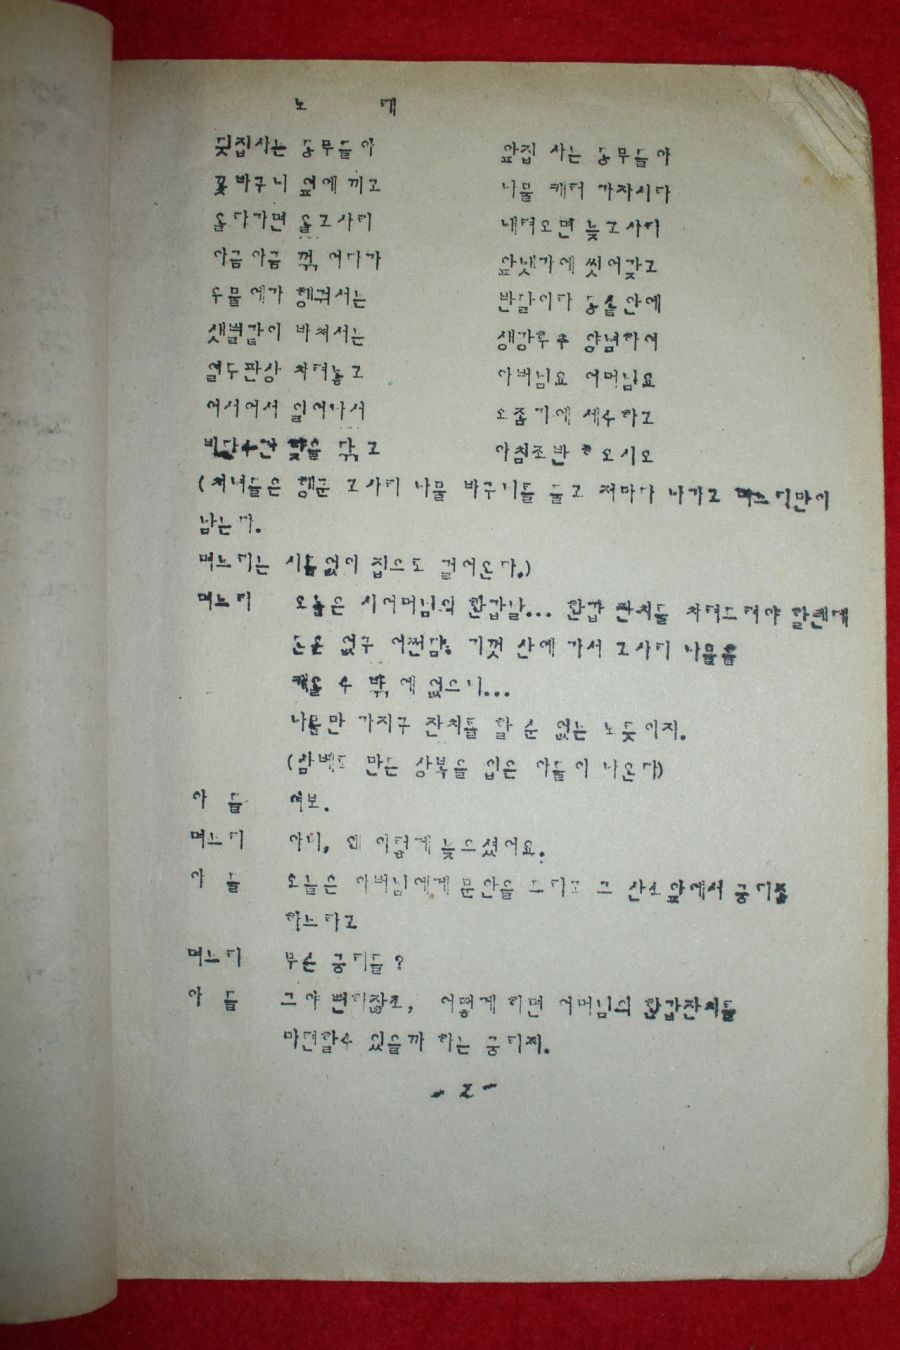 노 래
뒷집사는 동무들아 앞집 사는 동무들아
꽃바구니 옆에 끼고 나물 캐러 가자시라
올라가면 올고사리 내려오면 늦고사리
아금아금 꺾어다가 앞냇가에 씻어갖고
우물에가 헹궈서는 반달이라 동솥안에
샛별같이 바쳐서는 생강후추 양념하여
열두판상 차려놓고 아버님요 어머님요
어서어서 일어나서 오줌기에 세수하고
비단수건 낯을 닦고 아침조반 오시오
(처녀들은 헹군 고사리 나물 바구니를 들고 저마다 나가고 며느리만이
남는다.
며느리는 시름없이 집으로 걸어온다.)
며느리 오늘은 시어머님의 환갑날... 환갑 잔치를 차려드려야 할텐데
돈은 없구 어쩐담. 기껏 산에 가서 고사리 나물을
캐올 수 밖에 없으니...
나물만 가지구 잔치를 할 순 없는 노릇이지.
(삼베로 만든 상복을 입은 아들이 나온다)
아 들 여보.
며느리 아니, 왜 이렇게 늦으셨어요.
아 들 오늘은 아버님에게 문안을 드리고 그 산소앞에서 궁리좀
하느라고
며느리 무슨 궁리를?
아 들 그야 뻔하잖소, 어떻게 하면 어머님의 환갑잔치를
마련할수 있을까 하는 궁리지.
-2-